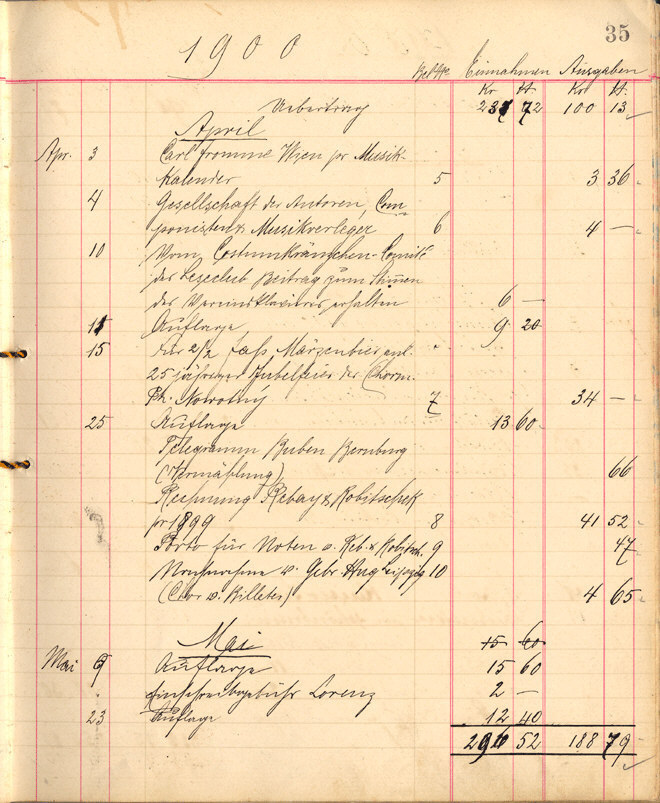 35
1900
Bel. Nr. Einnahmen Ausgaben
Kr H Kr H
Uebertrag 237 72 100 13
April
Apr. 3 Carl Fromme Wien pr Musik-
Kalender 5 3 36
4 Gesellschaft der Autoren, Com-
ponisten & Musikverleger 6 4 —
10 Vom Costümkränzchen-Comité
der Leseclub Beitrag zum Stimmen
des Vereinsklavieres erhalten 6 —
11 Auflage 9 20
15 Für 2/2 Fass Märzenbier anl.
25 jähriger Jubelfeier der Chorm.
Ph. Nowotny 7 34 —
25 Auflage 13 60
Telegramm Buben Bernburg
(Vermählung) 66
Rechnung Rebay & Robitschek
pr 1899 8 41 52
Porto für Noten v. Reb. & Robitsch. 9 47
Nachnahme v. Gebr Hug Leipzig 10
(Chor v. Billeter) 4 65
Mai 15 60
Mai Auflage 15 60
" Einschreibegebühr Lorenz 2 —
23 Auflage 12 40
52 188 79